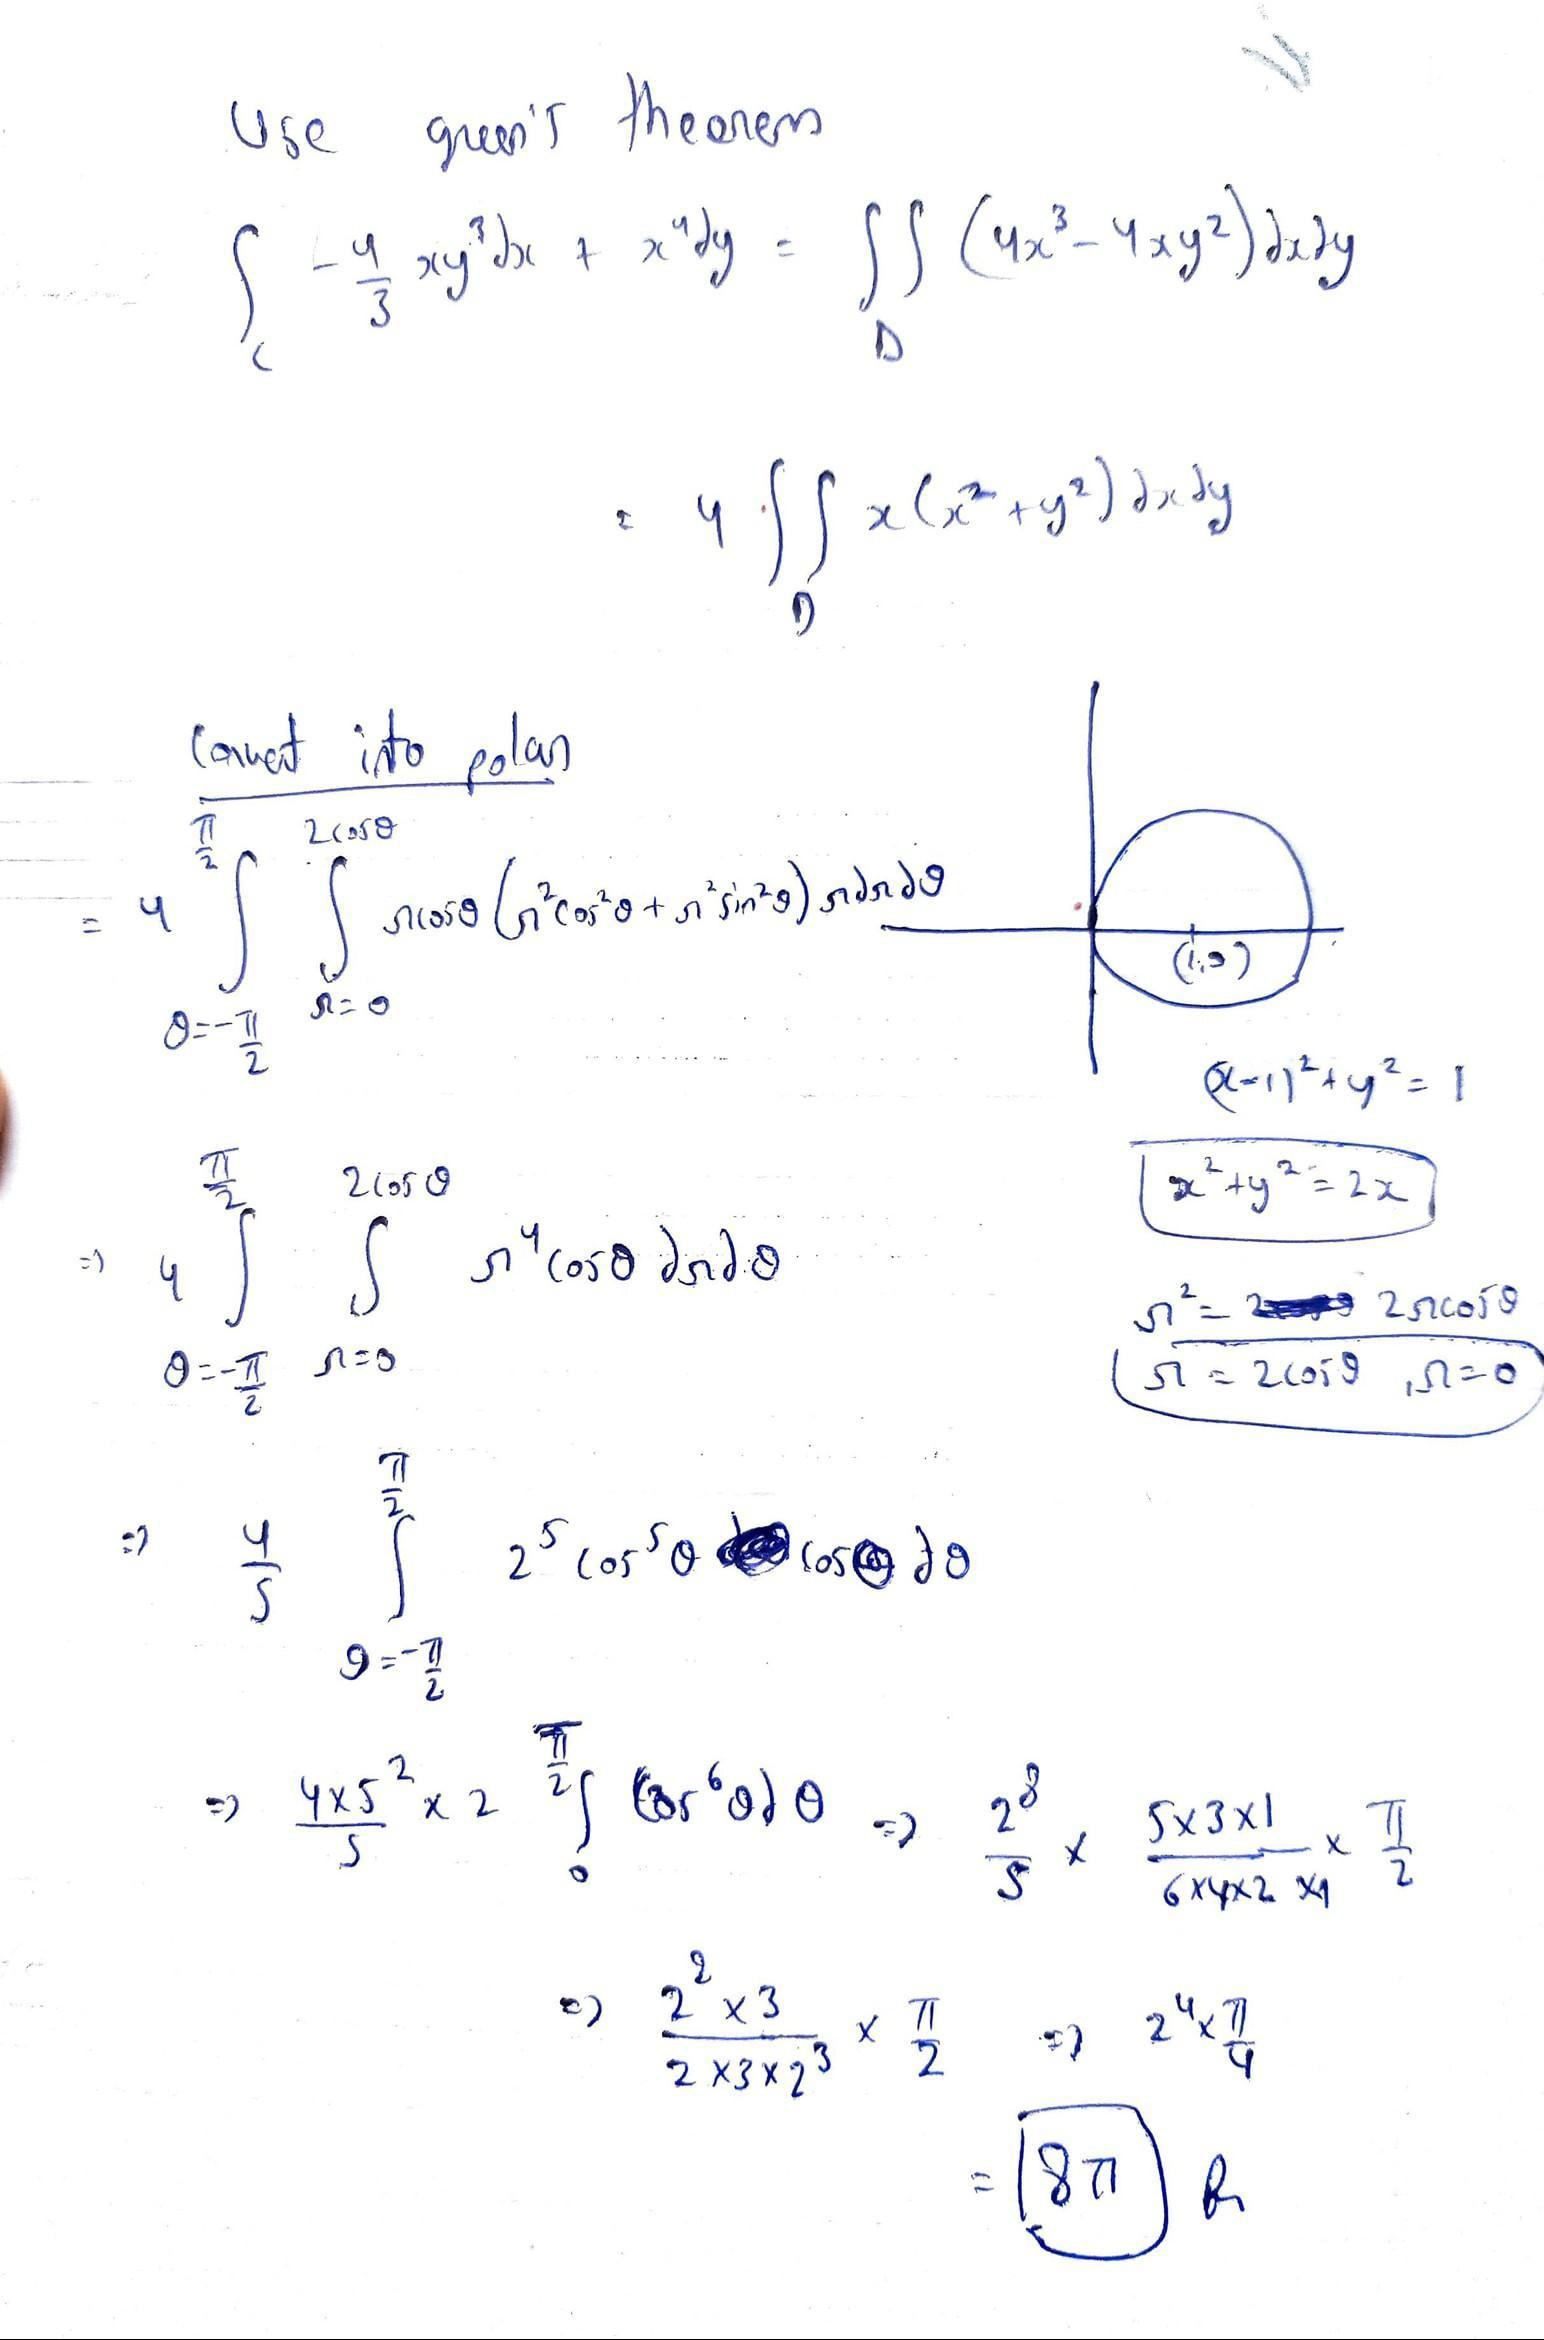 Use green's theorem
∫_C -4/3 xy³dx + x⁴dy = ∬_D (4x³-4xy²)dxdy
= 4 ∬_D x(x²+y²)dxdy
Convert into polar
= 4 ∫_{θ=-π/2}^{π/2} ∫_{r=0}^{2cosθ} rcosθ(r²cos²θ + r²sin²θ) rdrdθ
(1,0)
(x-1)²+y²=1
x²+y²=2x
⇒ 4 ∫_{θ=-π/2}^{π/2} ∫_{r=0}^{2cosθ} r⁴cosθ drdθ
r²= 2rcosθ
r = 2cosθ, r=0
⇒ 4/5 ∫_{θ=-π/2}^{π/2} 2⁵ cos⁵θ cosθ dθ
⇒ 4×5²/5 × 2 ∫_0^{π/2} cos⁶θdθ ⇒ 2⁸/5 × 5×3×1/6×4×2×1 × π/2
⇒ 2²×3/2×3×2³ × π/2 ⇒ 2⁴×π/4
= 8π